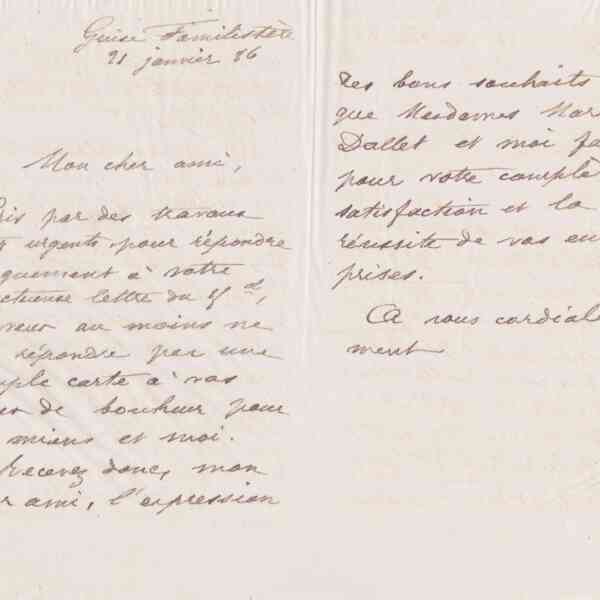 Guise Familistère
21 janvier 86
Mon cher ami,
pris par des travaux
urgents pour répondre
quement à votre
ctueuse lettre du 15 ct,
veux au moins ne
répondre par une
mple carte à vos
de bonheur pour
miens et moi.
Recevez donc, mon
r ami, l'expression
des bons souhaits
que Mesdames Mar
Dallet et moi fa
pour votre complè
satisfaction et la
réussite de vos en
prises.
A vous cordiale
ment